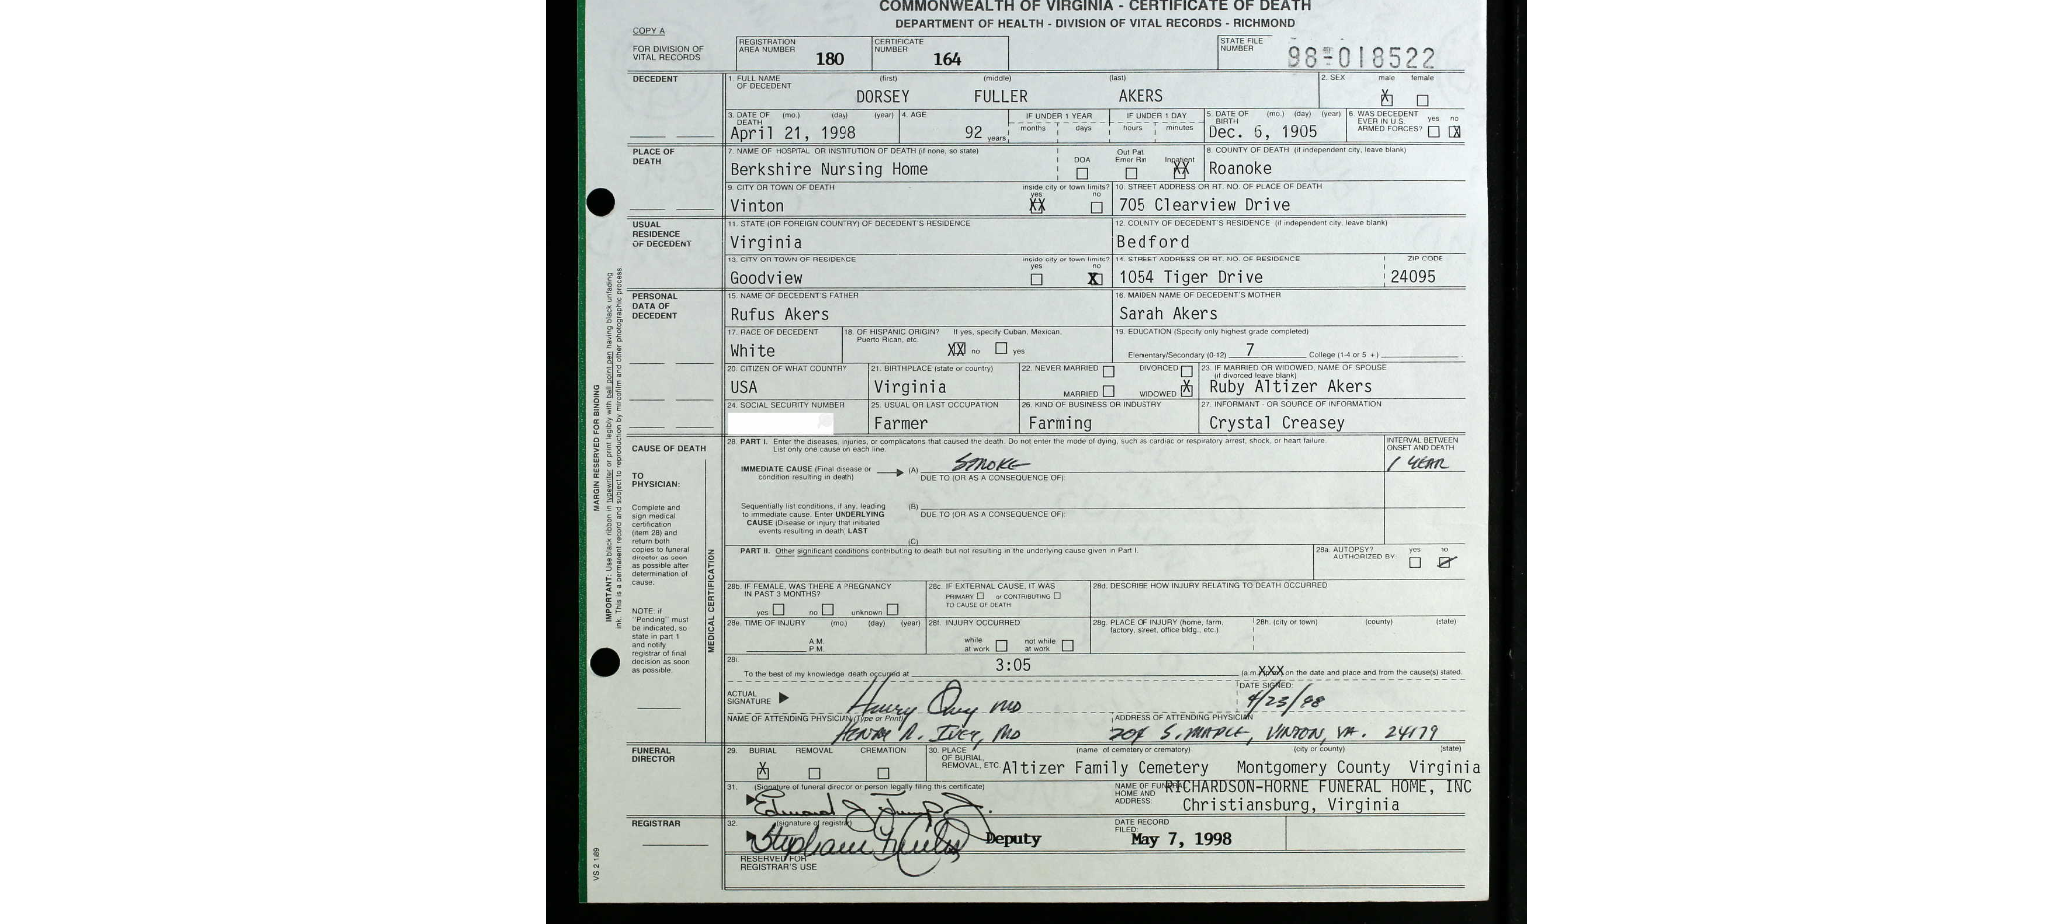 COMMONWEALTH OF VIRGINIA - CERTIFICATE OF DEATH
DEPARTMENT OF HEALTH - DIVISION OF VITAL RECORDS - RICHMOND
COPY A
FOR DIVISION OF VITAL RECORDS
REGISTRATION AREA NUMBER 180
CERTIFICATE NUMBER 164
STATE FILE NUMBER 98-018522
DECEDENT
1. FULL NAME OF DECEDENT (first) (middle) (last)
DORSEY FULLER AKERS
2. SEX male female
X
3. DATE OF DEATH (mo.) (day) (year)
April 21, 1998
4. AGE 92 years
IF UNDER 1 YEAR months days
IF UNDER 1 DAY hours minutes
5. DATE OF BIRTH (mo.) (day) (year)
Dec. 6, 1905
6. WAS DECEDENT EVER IN U.S. ARMED FORCES? yes no
X
PLACE OF DEATH
7. NAME OF HOSPITAL OR INSTITUTION OF DEATH (if none, so state)
Berkshire Nursing Home
DOA Out Pat. Emer Rm Inpatient
XX
8. COUNTY OF DEATH (if independent city, leave blank)
Roanoke
9. CITY OR TOWN OF DEATH
Vinton
inside city or town limits? yes no
XX
10. STREET ADDRESS OR RT. NO. OF PLACE OF DEATH
705 Clearview Drive
USUAL RESIDENCE OF DECEDENT
11. STATE (OR FOREIGN COUNTRY) OF DECEDENT'S RESIDENCE
Virginia
12. COUNTY OF DECEDENT'S RESIDENCE (if independent city, leave blank)
Bedford
13. CITY OR TOWN OF RESIDENCE
Goodview
inside city or town limits? yes no
X
14. STREET ADDRESS OR RT. NO. OF RESIDENCE
1054 Tiger Drive
ZIP CODE
24095
PERSONAL DATA OF DECEDENT
15. NAME OF DECEDENT'S FATHER
Rufus Akers
16. MAIDEN NAME OF DECEDENT'S MOTHER
Sarah Akers
17. RACE OF DECEDENT
White
18. OF HISPANIC ORIGIN? If yes, specify Cuban, Mexican, Puerto Rican, etc.
XX no yes
19. EDUCATION (Specify only highest grade completed)
Elementary/Secondary (0-12) 7 College (1-4 or 5 +)
20. CITIZEN OF WHAT COUNTRY
USA
21. BIRTHPLACE (state or country)
Virginia
22. NEVER MARRIED DIVORCED
MARRIED WIDOWED X
23. IF MARRIED OR WIDOWED, NAME OF SPOUSE (if divorced leave blank)
Ruby Altizer Akers
24. SOCIAL SECURITY NUMBER
25. USUAL OR LAST OCCUPATION
Farmer
26. KIND OF BUSINESS OR INDUSTRY
Farming
27. INFORMANT - OR SOURCE OF INFORMATION
Crystal Creasey
CAUSE OF DEATH
28. PART I. Enter the diseases, injuries, or complicatons that caused the death. Do not enter the mode of dying, such as cardiac or respiratory arrest, shock, or heart failure.
List only one cause on each line.
INTERVAL BETWEEN ONSET AND DEATH
IMMEDIATE CAUSE (Final disease or condition resulting in death) (A) STROKE
1 YEAR
DUE TO (OR AS A CONSEQUENCE OF):
Sequentially list conditions, if any, leading to immediate cause. Enter UNDERLYING CAUSE (Disease or injury that initiated events resulting in death) LAST
(B)
DUE TO (OR AS A CONSEQUENCE OF):
(C)
TO PHYSICIAN:
Complete and sign medical certification (item 28) and return both copies to funeral director as soon as possible after determination of cause.
NOTE: if "Pending" must be indicated, so state in part 1 and notify registrar of final decision as soon as possible.
MEDICAL CERTIFICATION
PART II. Other significant conditions contributing to death but not resulting in the underlying cause given in Part I.
28a. AUTOPSY? yes no
AUTHORIZED BY:
28b. IF FEMALE, WAS THERE A PREGNANCY IN PAST 3 MONTHS?
yes no unknown
28c. IF EXTERNAL CAUSE, IT WAS
PRIMARY or CONTRIBUTING
TO CAUSE OF DEATH
28d. DESCRIBE HOW INJURY RELATING TO DEATH OCCURRED
28e. TIME OF INJURY (mo.) (day) (year)
A.M.
P.M.
28f. INJURY OCCURRED
while at work not while at work
28g. PLACE OF INJURY (home, farm, factory, street, office bldg., etc.)
28h. (city or town) (county) (state)
28i. 3:05
To the best of my knowledge death occurred at (a.m. XXX on the date and place and from the cause(s) stated.
ACTUAL SIGNATURE
MD
DATE SIGNED:
4/23/98
NAME OF ATTENDING PHYSICIAN (Type or Print)
HENRY R. IVEY, MD
ADDRESS OF ATTENDING PHYSICIAN
S. MAPLE, VINTON, VA. 24179
FUNERAL DIRECTOR
29. BURIAL REMOVAL CREMATION
X
30. PLACE OF BURIAL, REMOVAL, ETC. (name of cemetery or crematory) (city or county) (state)
Altizer Family Cemetery Montgomery County Virginia
31. (Signature of funeral director or person legally filing this certificate)
NAME OF FUNERAL HOME AND ADDRESS:
RICHARDSON-HORNE FUNERAL HOME, INC
Christiansburg, Virginia
REGISTRAR
32. (signature of registrar)
Deputy
DATE RECORD FILED:
May 7, 1998
RESERVED FOR REGISTRAR'S USE
MARGIN RESERVED FOR BINDING
IMPORTANT: Use black ribbon in typewriter or print legibly with ball point pen having black unfading ink. This is a permanent record and subject to reproduction by mircofilm and other photographic process.
VS 2 1/89